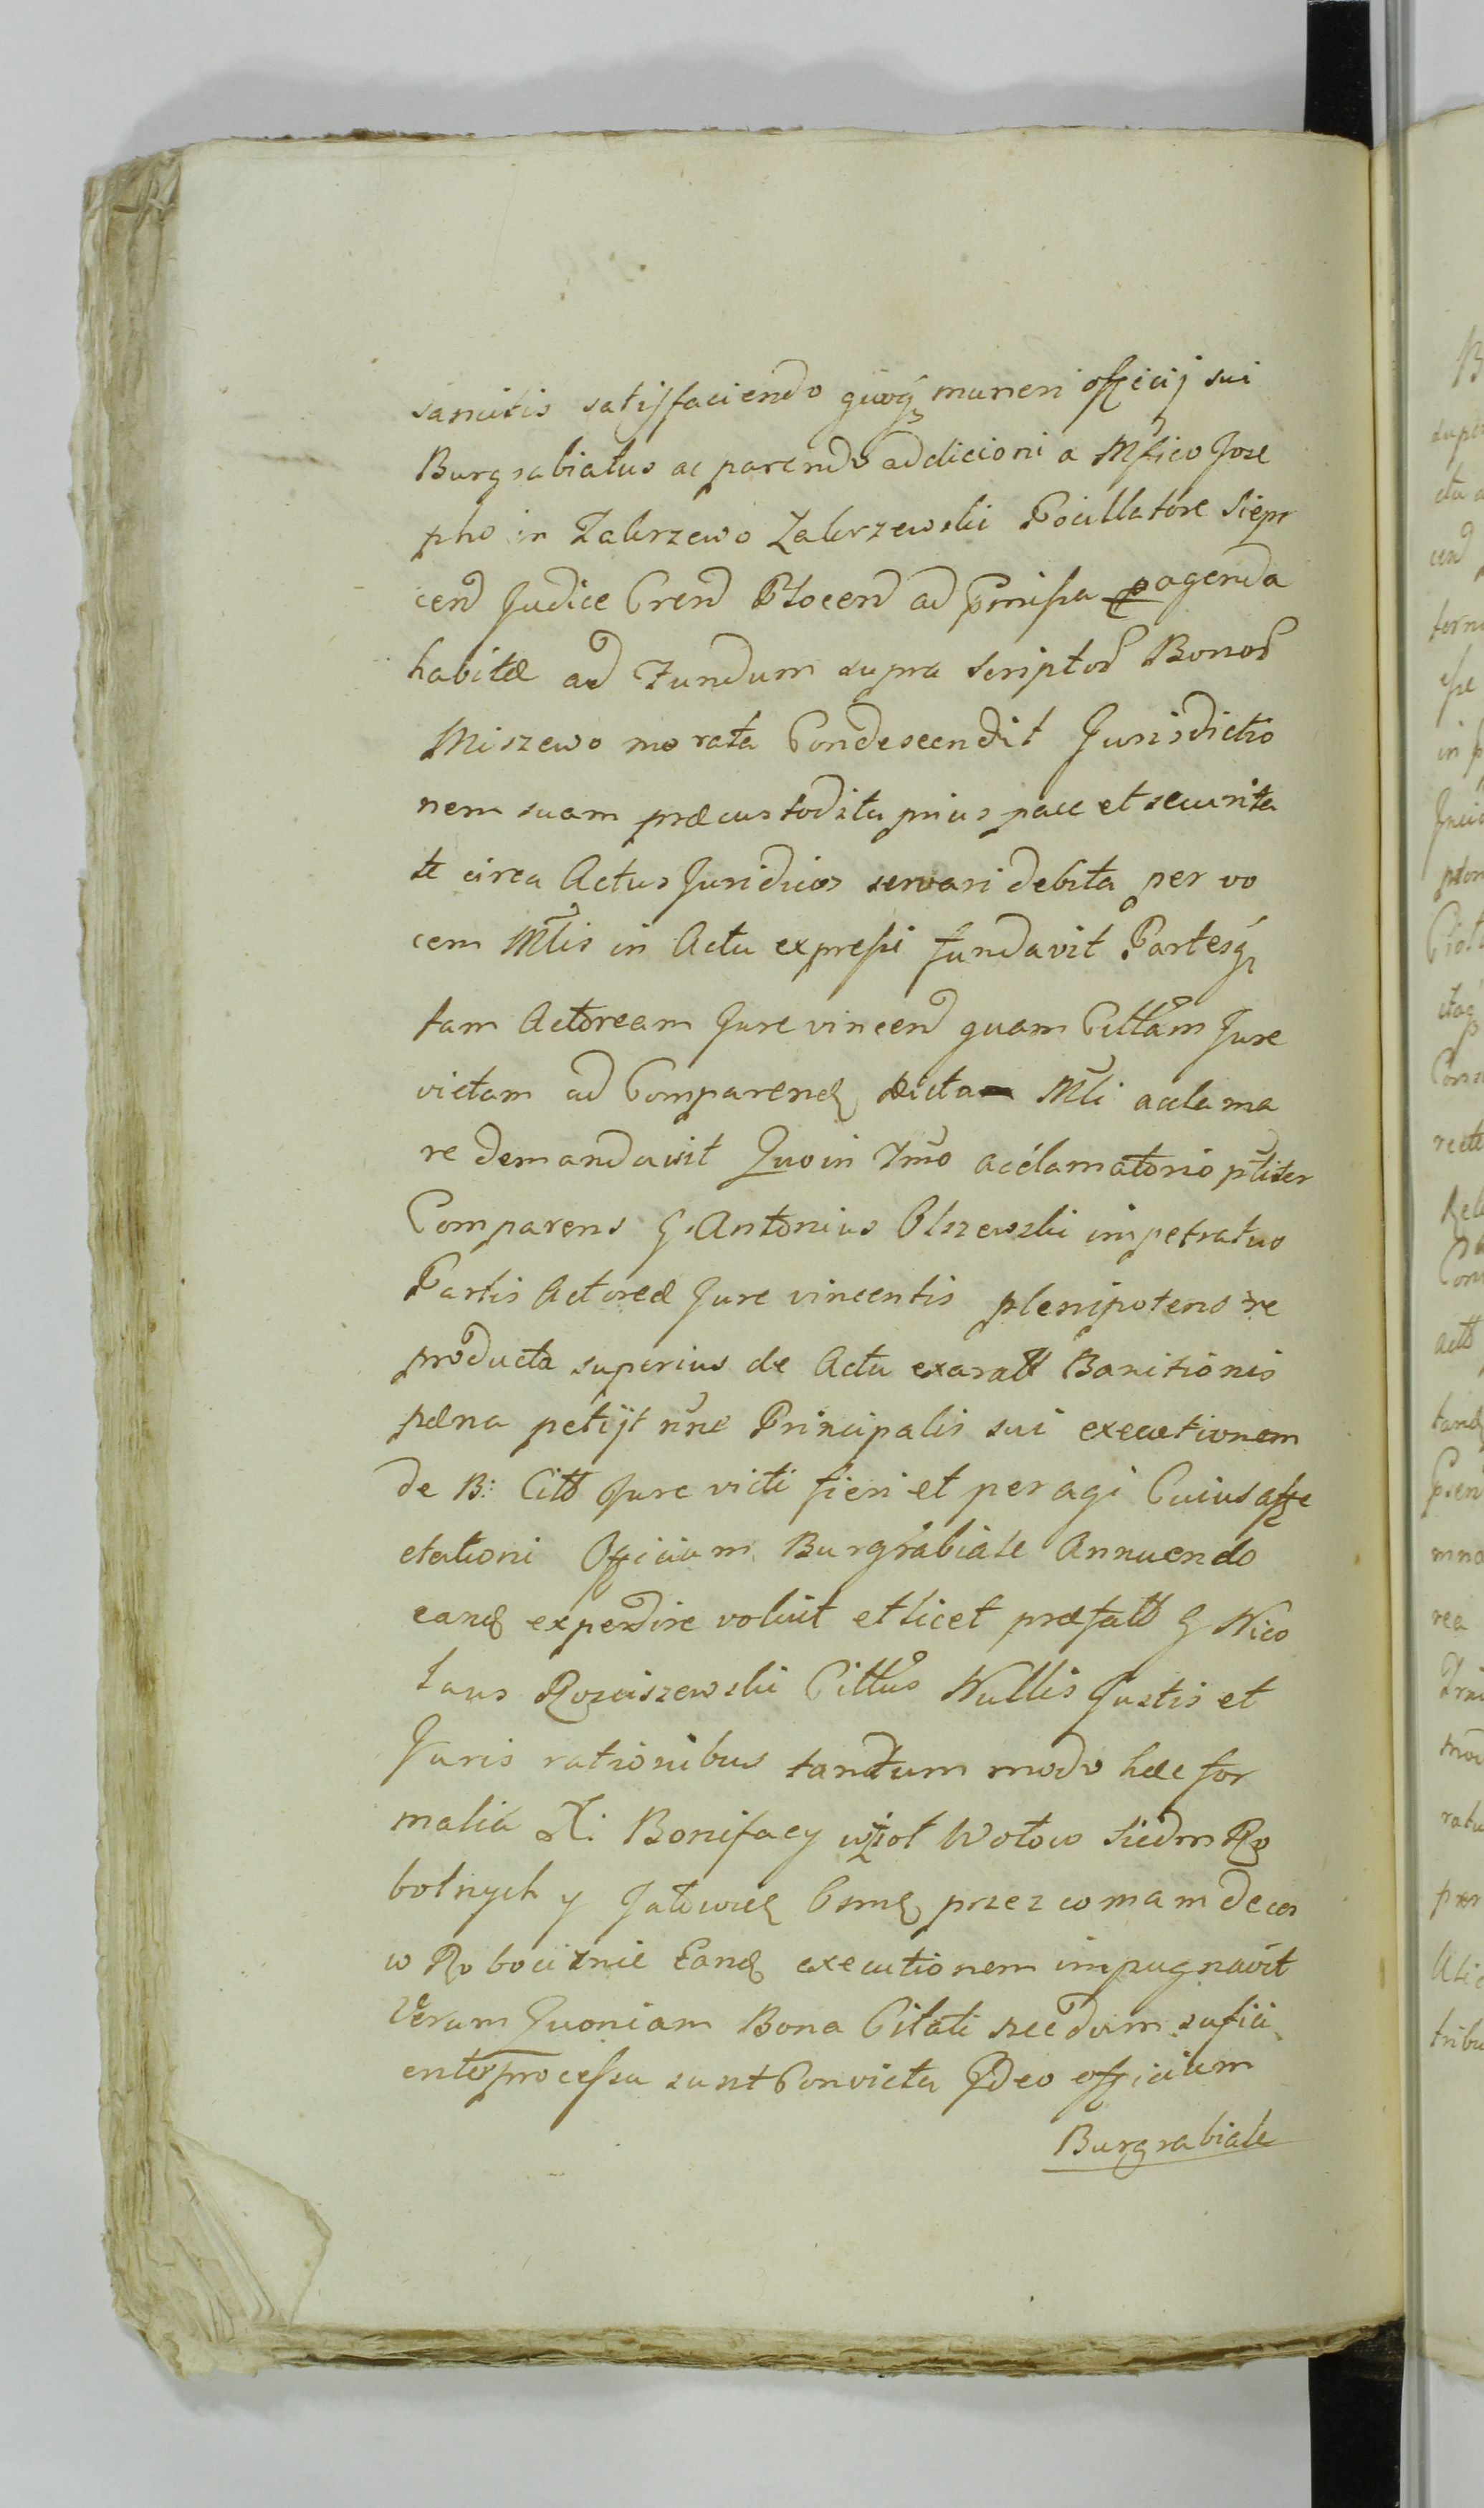 sancitis satisfaciendo quoq muneri officij sui
Burgrabiatus ac parendo addicioni a Mfico Jose
pho in Zakrzewo Zakrzewski Pocillatore Siepr
cen Judice Cren Plocen ad Pmissa pagenda
habitæ ad Fundum supra scriptor Bonor
Miszewo morata Condescendit Jurisdictio
nem suam præcustodita prius pace et securita
te circa Actus Juridicos servari debita per vo
cem Mtlis in Actu expressi fundavit Partesq
tam Actoream Jure vincen quam Cittam Jure
victam ad Comparend dicto Mtli acclama
re demandavit Quo in Tmo acclamatorio pttliter
Comparens G. Antonius Olszewski impetratus
Partis Actoreæ Jure vincentis plenipotens re
producta superius de Actu exaratt Banitionis
pæna petijt nne Principalis sui executionem
de B: Citt Jure victi fieri et peragi Cuius affe
ctationi Officium Burgrabiale Annuendo
eand expedire voluit et licet præfatt G Nico
laus Rosciszewski Cittus Nullis Justis et
Juris rationibus tandtum modo hæc for
malia X: Bonifacy wziol Wołow siedm Ro
botnych y Jałowie Osm przez co mam decess
w Robociznie Eand executionem impugnavit
Verum Quoniam Bona Citati necdum sufici
ente processu sunt Convicta Ideo officium
Burgrabiale